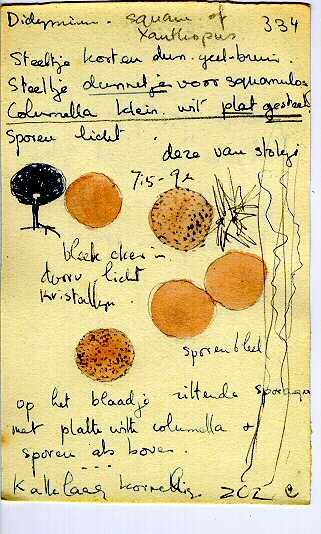 Didymium. squam. of 334
Xanthopus
Steeltje kort en dun. geel-bruin.
Steeltje dunnetjes voor squamulos
Columella klein. wit plat gesteel
Sporen licht.
deze van stokje
7.5-9µ
bleek oker in
doorv. licht
kristallen.
sporen bleek
op het blaadje zittende sporang
met platte witte columella +
sporen als boven.
Kalklaag korrelig. 202 e